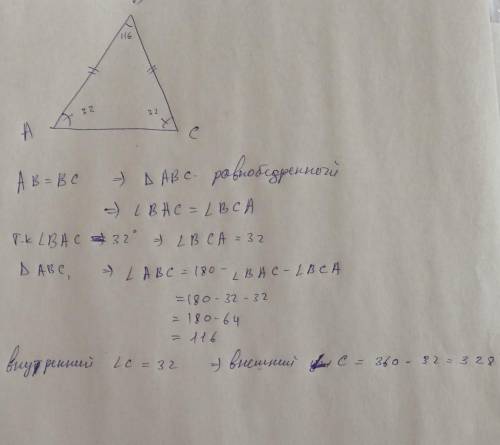 116
32
32
A
C
AB = BC ⇒ ΔABC. равнобедренный
⇒ ∠BAC = ∠BCA
т.к ∠BAC ⇒ 32° ⇒ ∠BCA = 32
ΔABC, ⇒ ∠ABC = 180 - ∠BAC - ∠BCA
= 180 - 32 - 32
= 180 - 64
= 116
внутренний ∠C = 32 ⇒ внешний C = 360 - 32 = 328